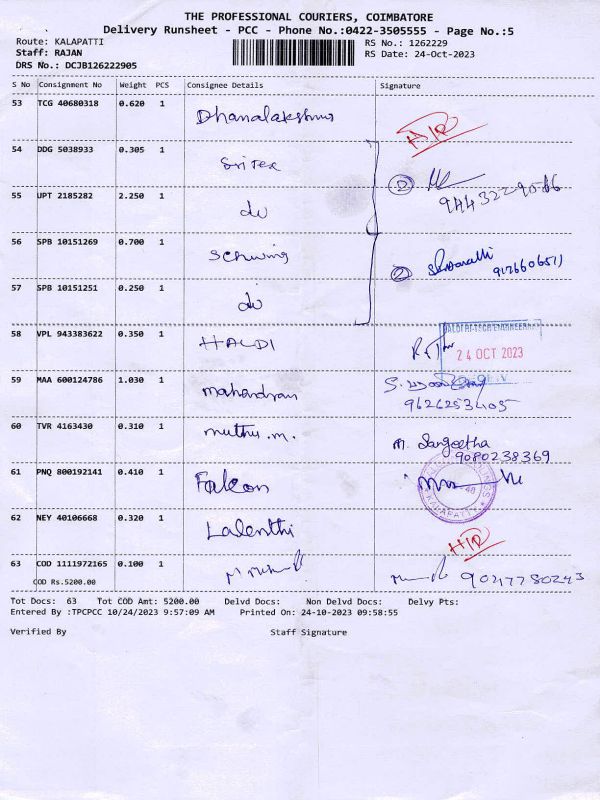 THE PROFESSIONAL COURIERS, COIMBATORE
Delivery Runsheet - PCC - Phone No.:0422-3505555 - Page No.:5
Route: KALAPATTI
Staff: RAJAN
DRS No.: DCJB126222905
RS No.: 1262229
RS Date: 24-Oct-2023
S No Consignment No Weight PCS Consignee Details Signature
53 TCG 40680318 0.620 1 Dhanalakshmi
54 DDG 5038933 0.305 1 Sritex
2
55 UPT 2185282 2.250 1 do
56 SPB 10151269 0.700 1 Schwing
2 9126606511
57 SPB 10151251 0.250 1 do
58 VPL 943383622 0.350 1 HALDI
24 OCT 2023
59 MAA 600124786 1.030 1 mahendran
9626253405
60 TVR 4163430 0.310 1 muthu.m. m. Sangeetha
9080238369
61 PNQ 800192141 0.410 1 Falcon
KALAPATTI
62 NEY 40106668 0.320 1 Lalenthi
63 COD 1111972165 0.100 1
COD Rs.5200.00
Tot Docs: 63 Tot COD Amt: 5200.00 Delvd Docs: Non Delvd Docs: Delvy Pts:
Entered By :TPCPCC 10/24/2023 9:57:09 AM Printed On: 24-10-2023 09:58:55
Verified By Staff Signature